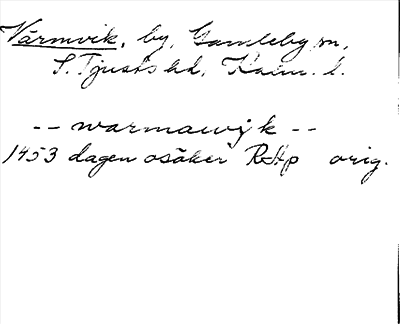 Värmvik, by, Gamleby sn,
S. Tjusts hd, Kalm. l.
-- warmawijk --
1453 dagen osäker RAp orig.